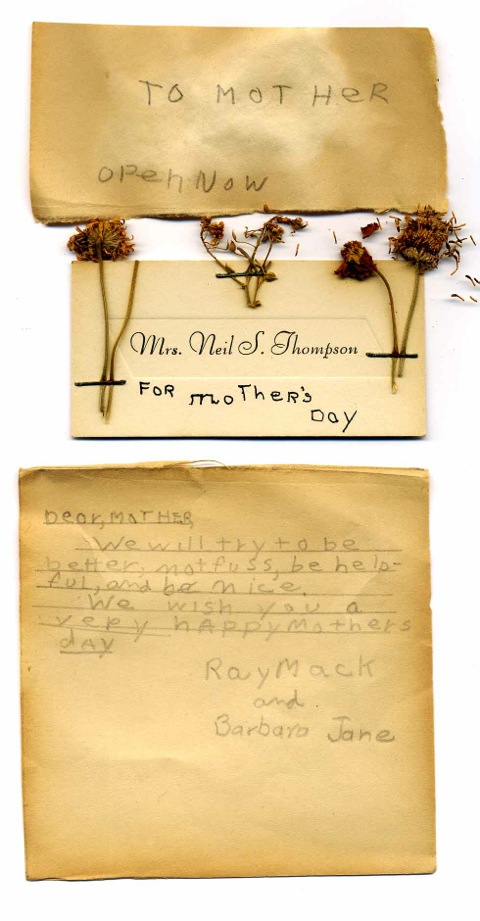 TO MOTHER
OPen NOW
Mrs. Neil S. Thompson
FOR moTher's
DAY
Dear, MOTHER
We will try to be
better, not fuss, be help-
ful, and be nice.
We wish you a
very hAppy Mothers
dAY
Ray Mack
and
Barbara Jane